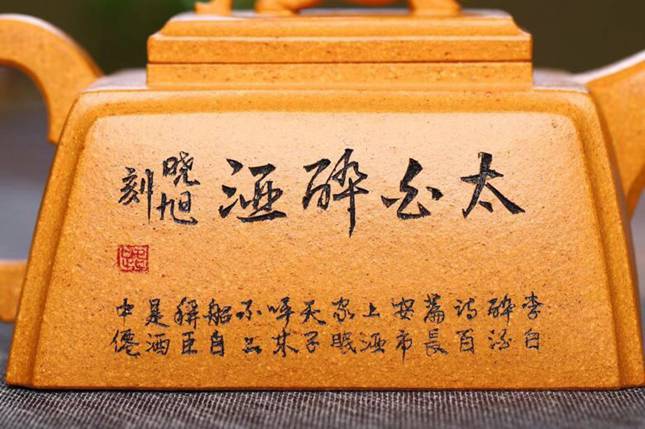 太白醉酒
晓旭
刻
李白
醉酒
诗百
篇長
安市
上酒
家眠
天子
呼来
不上
船自
稱臣
是酒
中僊